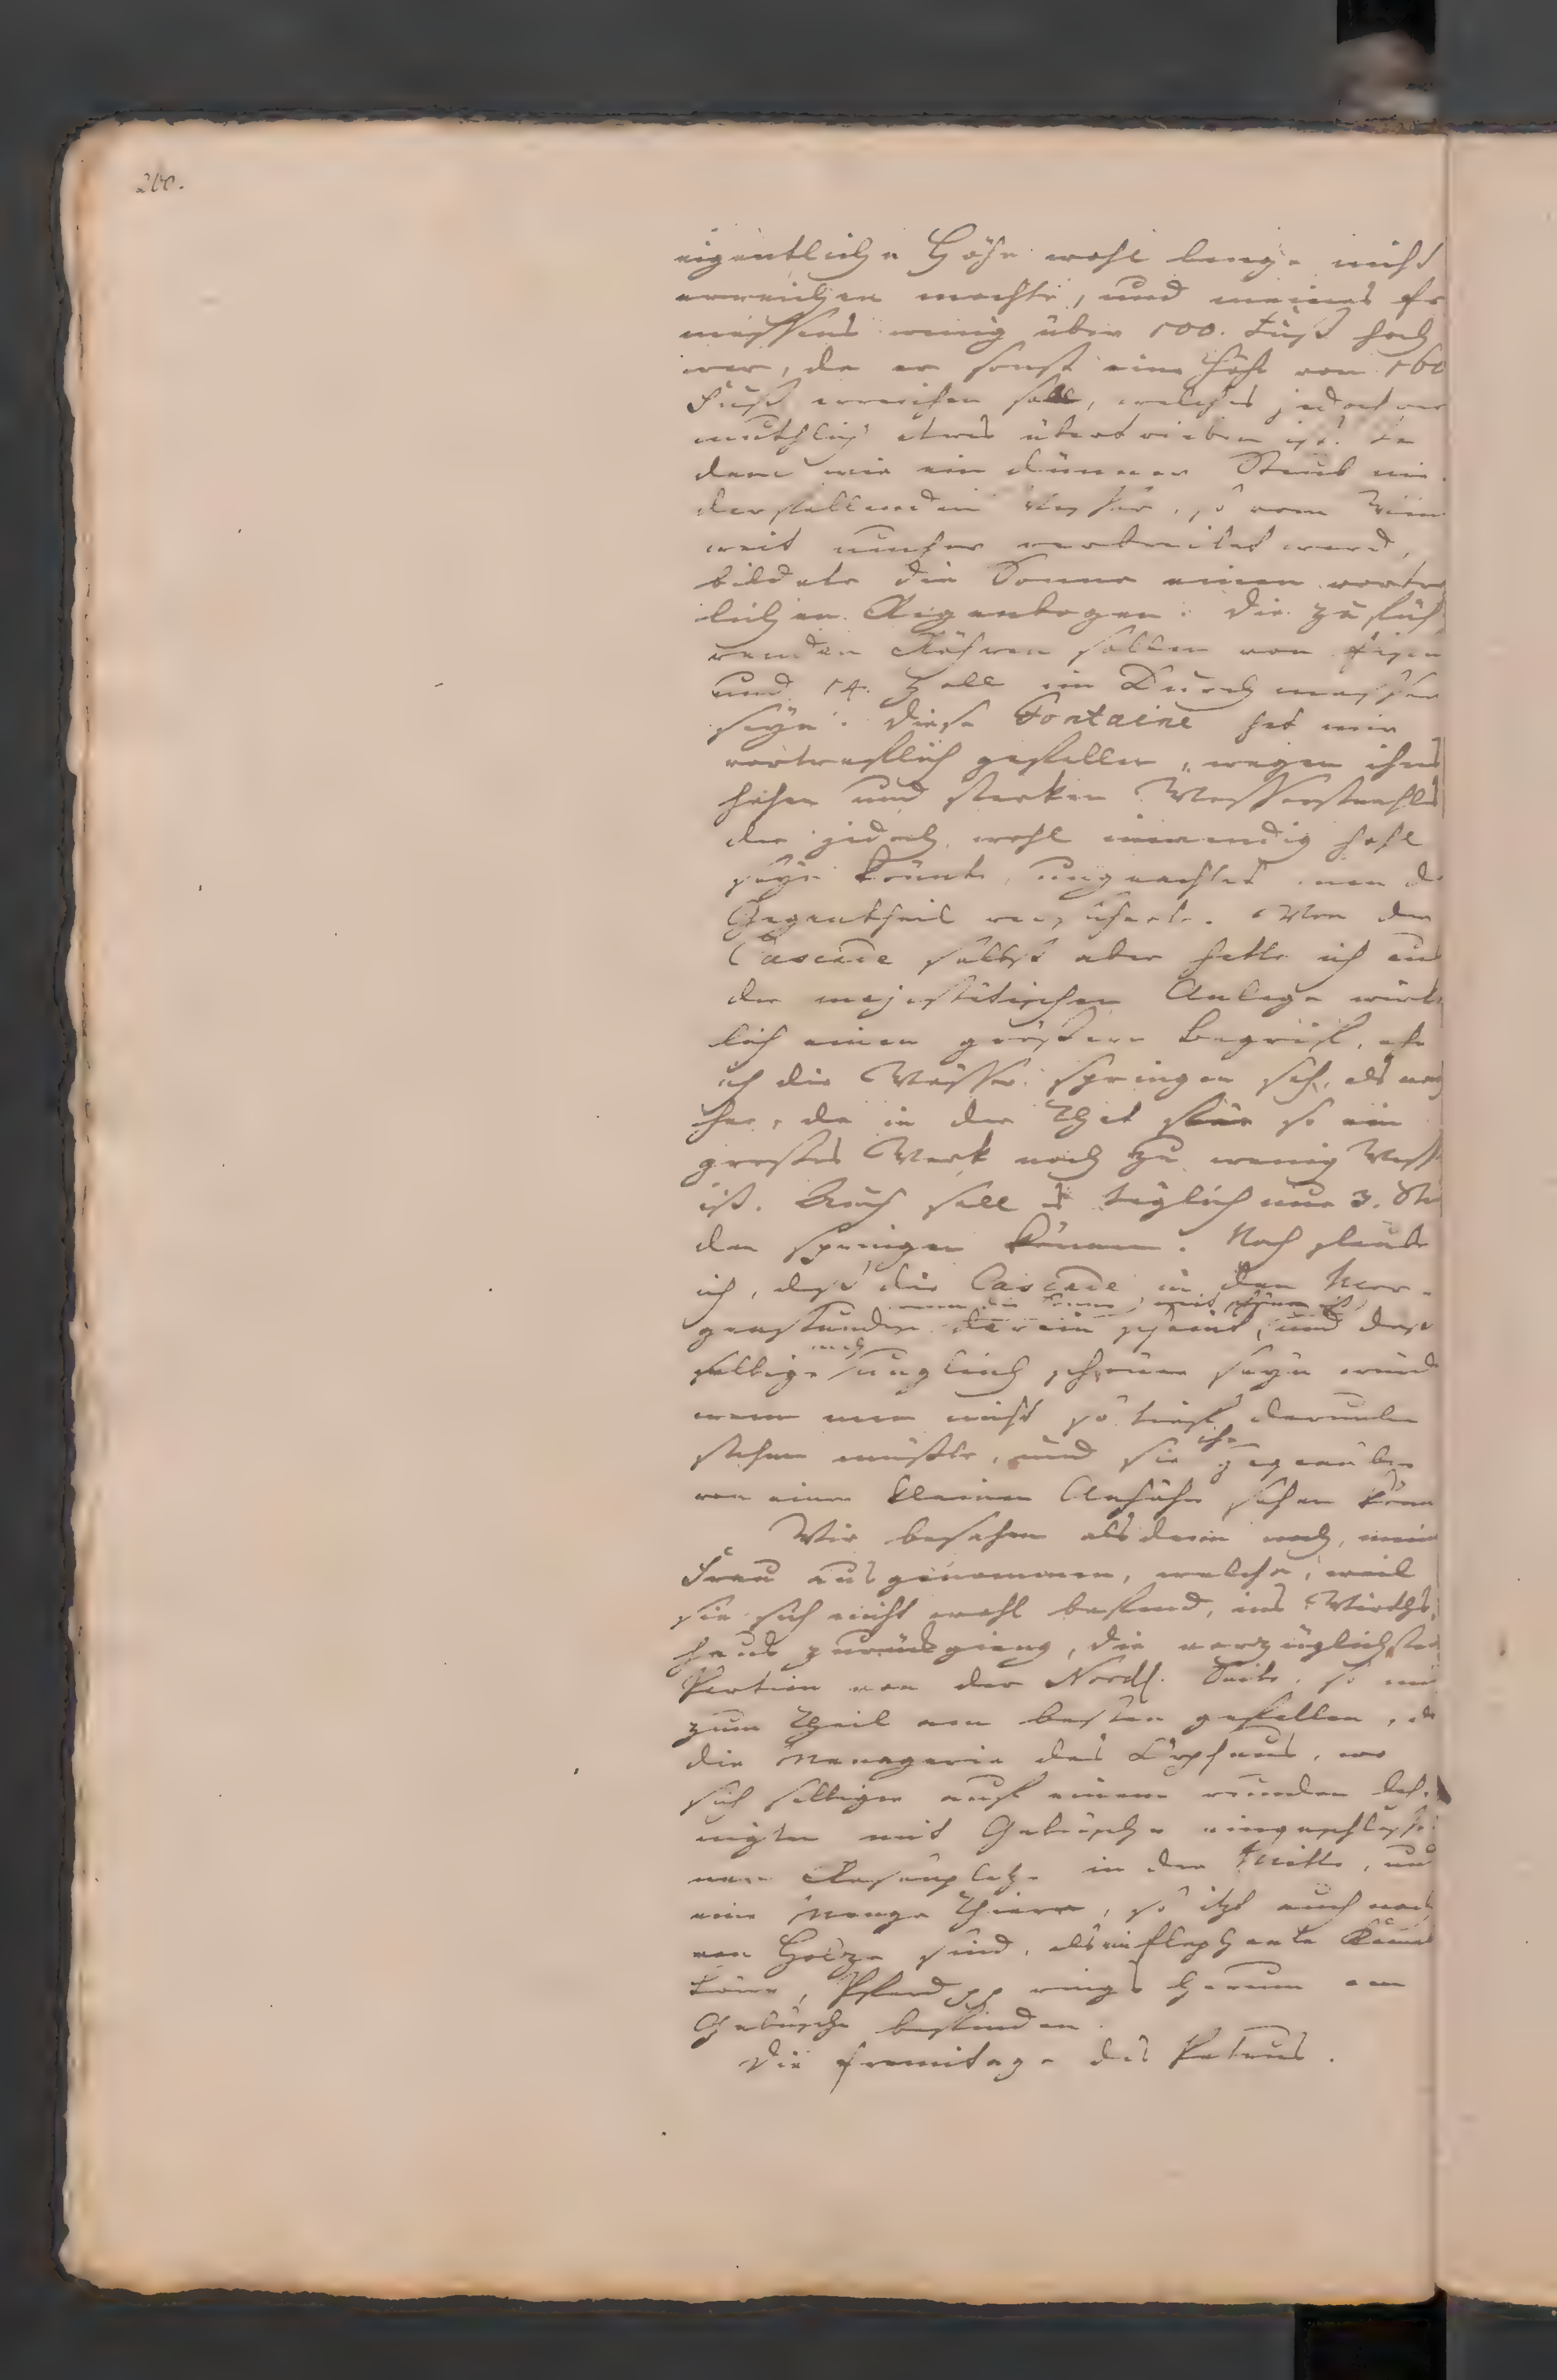 200.
eigentliche Höhe wohl lange nicht
erreichen mochte, und meines Er
messens wenig über 100. Fuß hoch
war, da er sonst eine Höhe von 160
Fuß erreichen soll, welches jedoch ver
muthlich etwas übertrieben ist. In
dem wie ein dünner Staub nie
derfallenden Wasser, so vom Win
weit umher verbreitet ward,
bildete die Sonne einen vortr
lichen Regenbogen. Die zu füh
renden Röhren sollen von Eisen
und 14. Zoll im Durchmesser
seyn. Diese Fontaine hat mir
vortreflich gefallen, wegen ihres
hohen und starken Wasserstrahls
der jedoch wohl inwendig hohl
seyn könnte, ungeachtet man d
Gegentheil versicherte. Von der
Cascade selbst aber hatte ich aus
der majestätischen Anlage würk
lich einen größern Begrif, ehe
ich die Wasser springen sah, als nach
her, da in der That für so ein
großes Werk noch zu wenig Wass
ist. Auch soll es täglich nur 3. Stu
den springen können. Noch glaube
ich, daß die Cascade in den Mor-
wenn die Sonne
genstunden darein scheint, und daß
noch
selbige ungleich schöner seyn würde
wenn man nicht so tief darunter
ihr
stehen müßte, und sie gegenüber
von einer kleinen Anhöhe sehen könn
Wir besahen alsdenn noch, mein
Frau ausgenommen, welche, weil
sie sich nicht wohl befand, ins Wirths
haus zurückgieng, die vorzüglichsten
Partien von der Nordl. Seite, so mir
zum Theil am besten gefallen, als
die Menagerie des Orpheus, wo
sich selbiger auf einem runden
mit Gebüsche eingeschlosse
nen Rasenplatze in der Mitte, und
eine Menge Thiere, so itzt auch noch
von Holze sind, als ein Elephante
Pferd pp rings herum am
Gebüsche befinden.
Die Eremitage des Petrus.